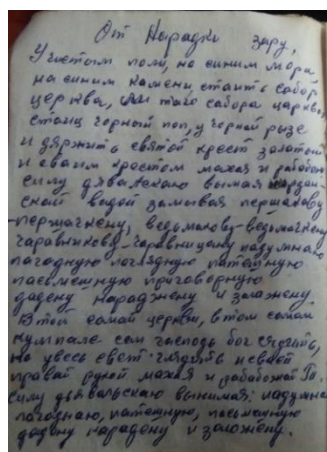 От Нарадки зару,
У чистым поли, на синим мора,
на синим камени, стаить сабор
церква, у том таго сабора царквы
стаиц чорный поп, у чорнай рызе
и дяржить святой крест залатои
и сваим крестом махая и
силу дяваLскаю вымая
скай водой замовая першакову
-першачкену, ведьмакову-ведьмачкену
чаравникову-чаравницкану надумнаю
пагодную поглядную патетную
пасьмешную приговорную
дадену нараджену и заложену.
В той самай церкви, в том самам
купале сам господь бог сядзить,
на увесь свет глядить и сваей
правай рукой махая и
силу дьявольскаю вынимая: надумна
пагоднаю, патетную, пасьмешную
дадону нарадону и заложену.